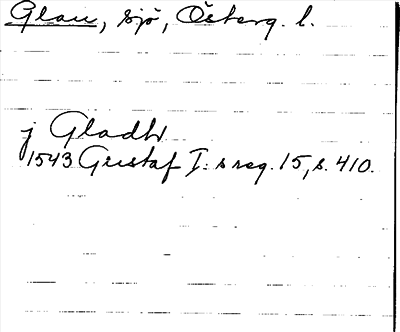 Glan, sjö, Österg. l.
j Gladh
1543 Gustaf I:s reg. 15, s. 410.